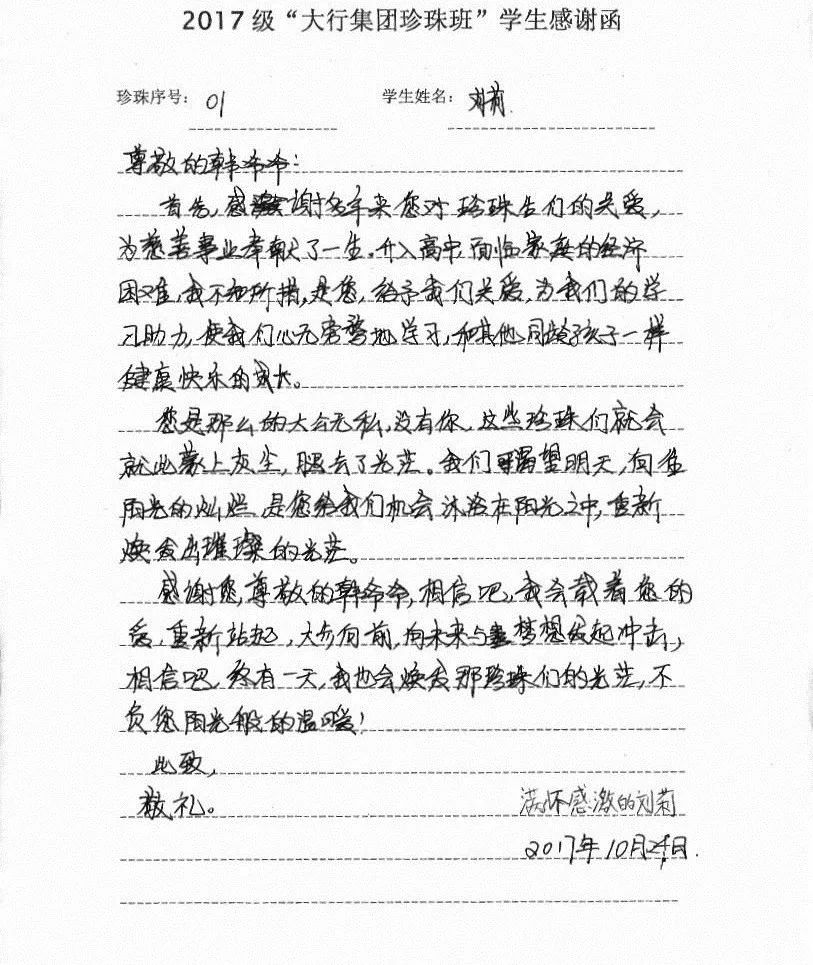 2017 级“大行集团珍珠班”学生感谢函
珍珠序号: 01 学生姓名: 刘莉
尊敬的韩爷爷:
首先,感谢多年来您对珍珠生们的关爱,
为慈善事业奉献了一生。升入高中,面临家庭的经济
困难,我不知所措,是您,给予我们关爱,为我们的学
习助力,使我们心无旁骛地学习,和其他同龄孩子一样
健康快乐的成长。
您是那么的大公无私,没有你,这些珍珠们就会
就此蒙上灰尘,黯去了光芒。我们渴望明天,向往
阳光的灿烂,是您给我们机会沐浴在阳光之中,重新
焕发出璀璨的光芒。
感谢您,尊敬的韩爷爷,相信吧,我会载着您的
爱,重新站起,大步向前,向未来与梦想发起冲击,
相信吧,终有一天,我也会焕发那珍珠们的光芒,不
负您阳光般的温暖!
此致,
敬礼。
满怀感激的刘莉
2017年10月24日.